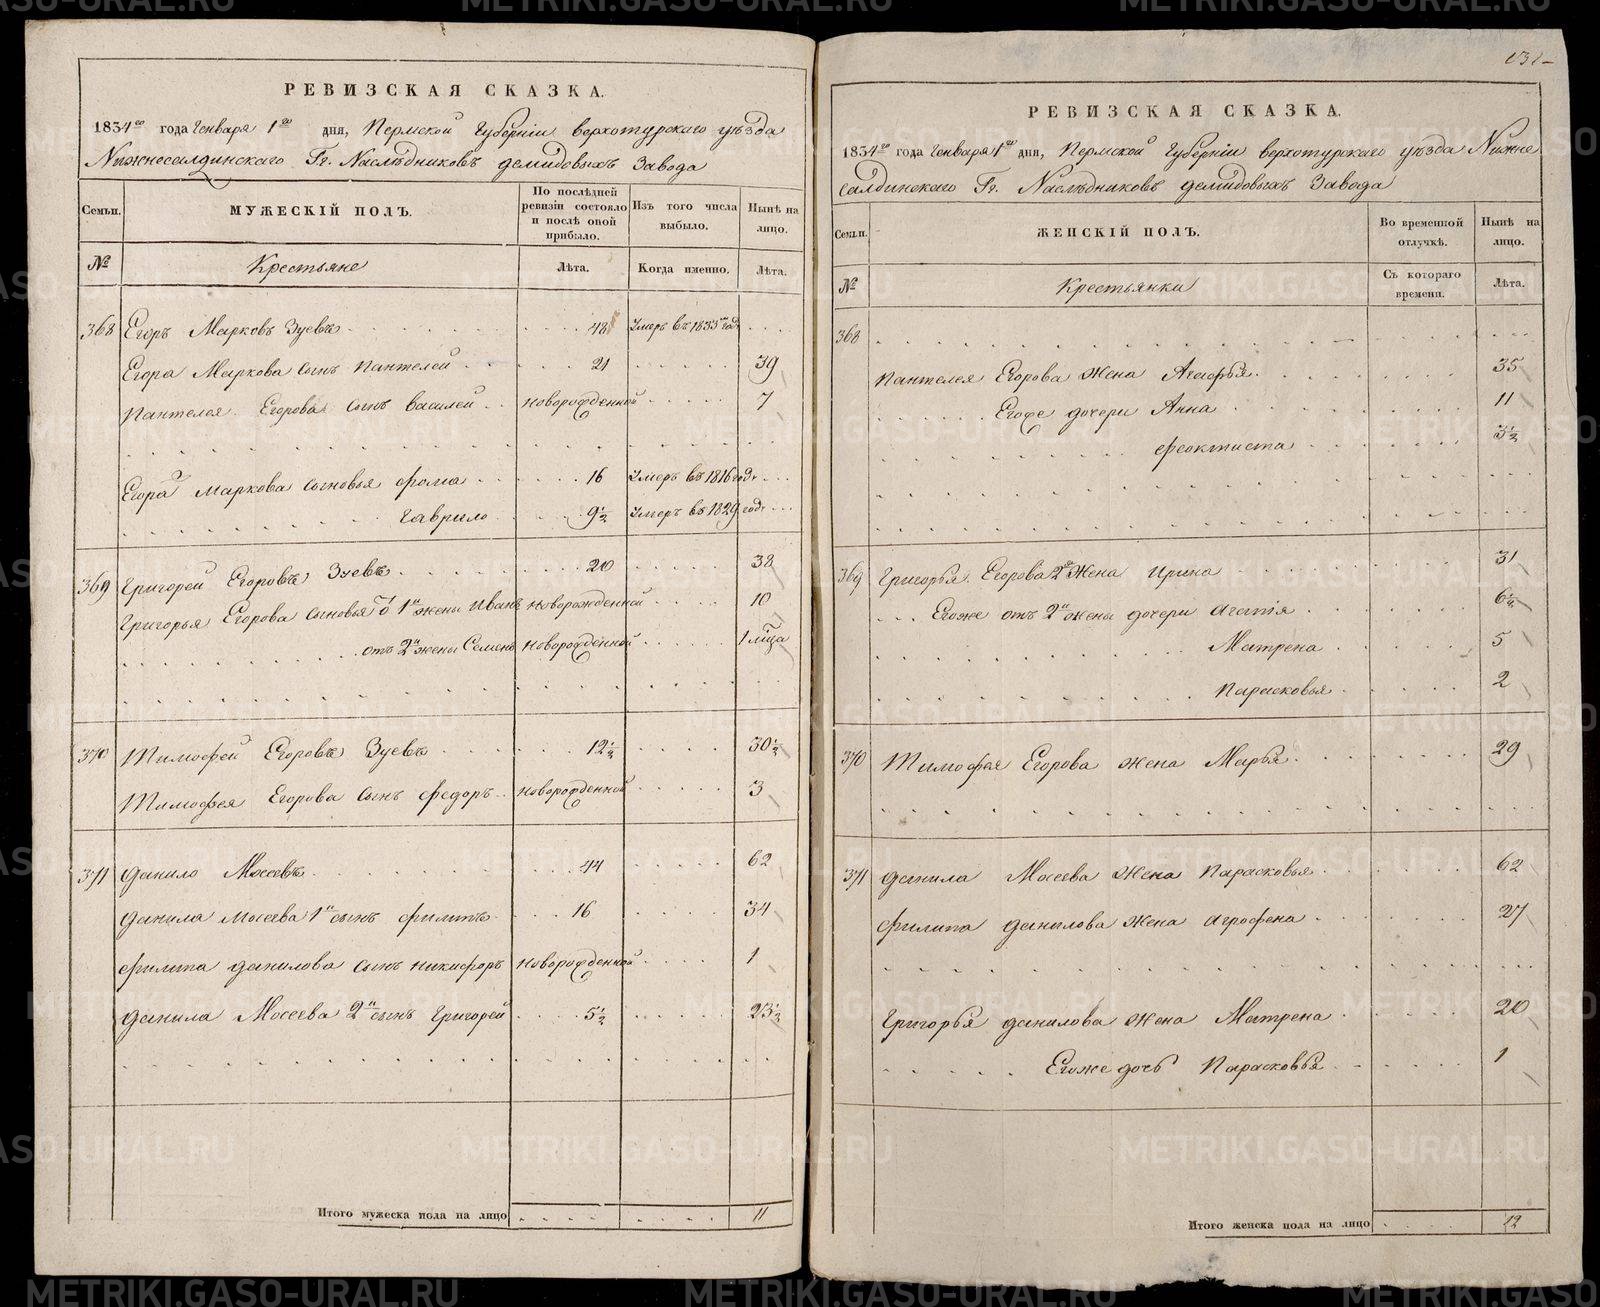 РЕВИЗСКАЯ СКАЗКА.
1834го года Генваря 1го дня, Пермской Губерніи Верхотурскаго уѣзда
Нижнесалдинскаго Гг. Наслѣдниковъ Демидовыхъ Завода
Семьи.
МУЖЕСКІЙ ПОЛЪ.
По послѣдней ревизіи состояло и послѣ оной прибыло.
Изъ того числа выбыло.
Нынѣ на лицо.
№
Крестьяне
Лѣта.
Когда именно.
Лѣта.
368 Егоръ Марковъ Зуевъ 48 Умеръ въ 1833м годѣ
Егора Маркова сынъ Пантелей 21 39
Пантелея Егорова сынъ Василей Новорожденной 7
Егора Маркова сыновья Фома 16 Умеръ въ 1816 годѣ
Гаврило 9½ Умеръ въ 1829 годѣ
369 Григорей Егоровъ Зуевъ 20 38
Григорья Егорова сыновья о 1й жены Иванъ Новорожденной 10
отъ 2й жены Семенъ Новорожденной 1 мѣца
370 Тимофей Егоровъ Зуевъ 12½ 30½
Тимофея Егорова сынъ Федоръ Новорожденной 3
371 Данило Мосеевъ 44 62
Данила Мосеева 1й сынъ Филипъ 16 34
Филипа Данилова сынъ Никифоръ Новорожденной 1
Данила Мосеева 2й сынъ Григорей 5½ 23½
Итого мужеска пола на лицо 11
131
РЕВИЗСКАЯ СКАЗКА.
1834го года Генваря 1го дня, Пермской Губерніи Верхотурскаго уѣзда Нижне
салдинскаго Гг. Наслѣдниковъ Демидовыхъ Завода
Семьи.
ЖЕНСКІЙ ПОЛЪ.
Во временной отлучкѣ.
Нынѣ на лицо.
№
Крестьянки
Съ котораго времени.
Лѣта.
368
Пантелея Егорова жена Агафья 35
Егоже дочери Анна 11
Феоктиста 3½
369 Григорья Егорова 2я жена Ирина 31
Егоже отъ 2й жены дочери Агапія 6½
Матрена 5
Парасковья 2
370 Тимофея Егорова жена Марья 29
371 Данила Мосеева жена Парасковья 62
Филипа Данилова жена Агрофена 27
Григорья Данилова жена Матрена 20
Егоже дочь Парасковья 1
Итого женска пола на лицо 12
METRIKI.GASO-URAL.RU